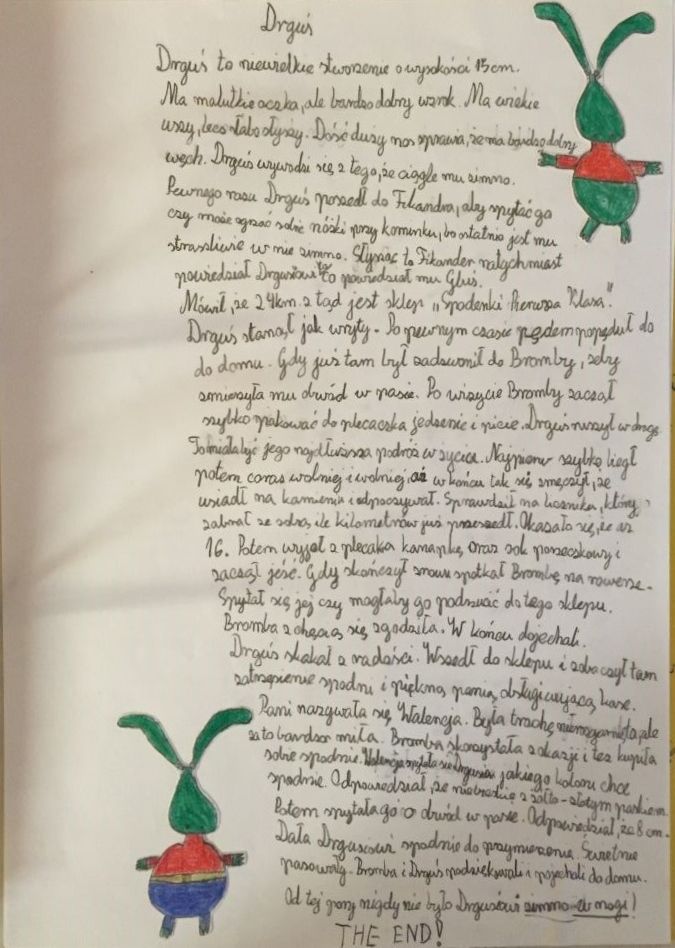 Drguś
Drguś to niewielkie stworzenie o wysokości 15cm.
Ma malutkie oczka, ale bardzo dobry wzrok. Ma wielkie
uszy, lecz słabo słyszy. Dość duży nos sprawia, że ma bardzo dobry
węch. Drguś wywodzi się z tego, że ciągle mu zimno.
Pewnego razu Drguś poszedł do Fikandra, aby spytać go
czy może ogrzać sobie nóżki przy kominku, bo ostatnio jest mu
straszliwie w nie zimno. Słysząc to Fikander natychmiast
powiedział Drgusiowi to co powiedział mu Gluś.
Mówił, że 24km. z tąd jest sklep "Spodenki Pierwsza Klasa".
Drguś stanął jak wryty. Po pewnym czasie pędem popędził do
do domu. Gdy już tam był zadzwonił do Bromby, żeby
zmierzyła mu obwód w pasie. Po wizycie Bromby zaczął
szybko pakować do plecaczka jedzenie i picie. Drguś ruszył w drogę
To miała być jego najdłuższa podróż w życiu. Najpierw szybko biegł
potem coraz wolniej i wolniej, aż w końcu tak się zmęczył, że
usiadł na kamieniu i odpoczywał. Sprawdził na liczniku, który
zabrał ze sobą, ile kilometrów już przeszedł. Okazało się, że aż
16. Potem wyjął z plecaka kanapkę oraz sok porzeczkowy i
zaczął jeść. Gdy skończył znowu spotkał Brombę na rowerze.
Spytał się jej czy mogłaby go podrzucić do tego sklepu.
Bromba z chęcią się zgodziła. W końcu dojechali.
Drguś skakał z radości. Wszedł do sklepu i zobaczył tam
zatrzęsienie spodni i piękną panią, obsługującą kasę.
Pani nazywała się Walencja. Była trochę nierozgarnięta, ale
za to bardzo miła. Bromba skorzystała z okazji i też kupiła
sobie spodnie. Walencja spytała się Drgusia jakiego koloru chce
spodnie. Odpowiedział, że niebieskie z żółto-złotym paskiem.
Potem spytała go o obwód w pasie. Odpowiedział, że 8cm.
Dała Drgusiowi spodnie do przymierzenia. Świetnie
pasowały. Bromba i Drguś podziękowali i pojechali do domu.
Od tej pory nigdy nie było Drgusiowi zimno w nogi!
THE END!